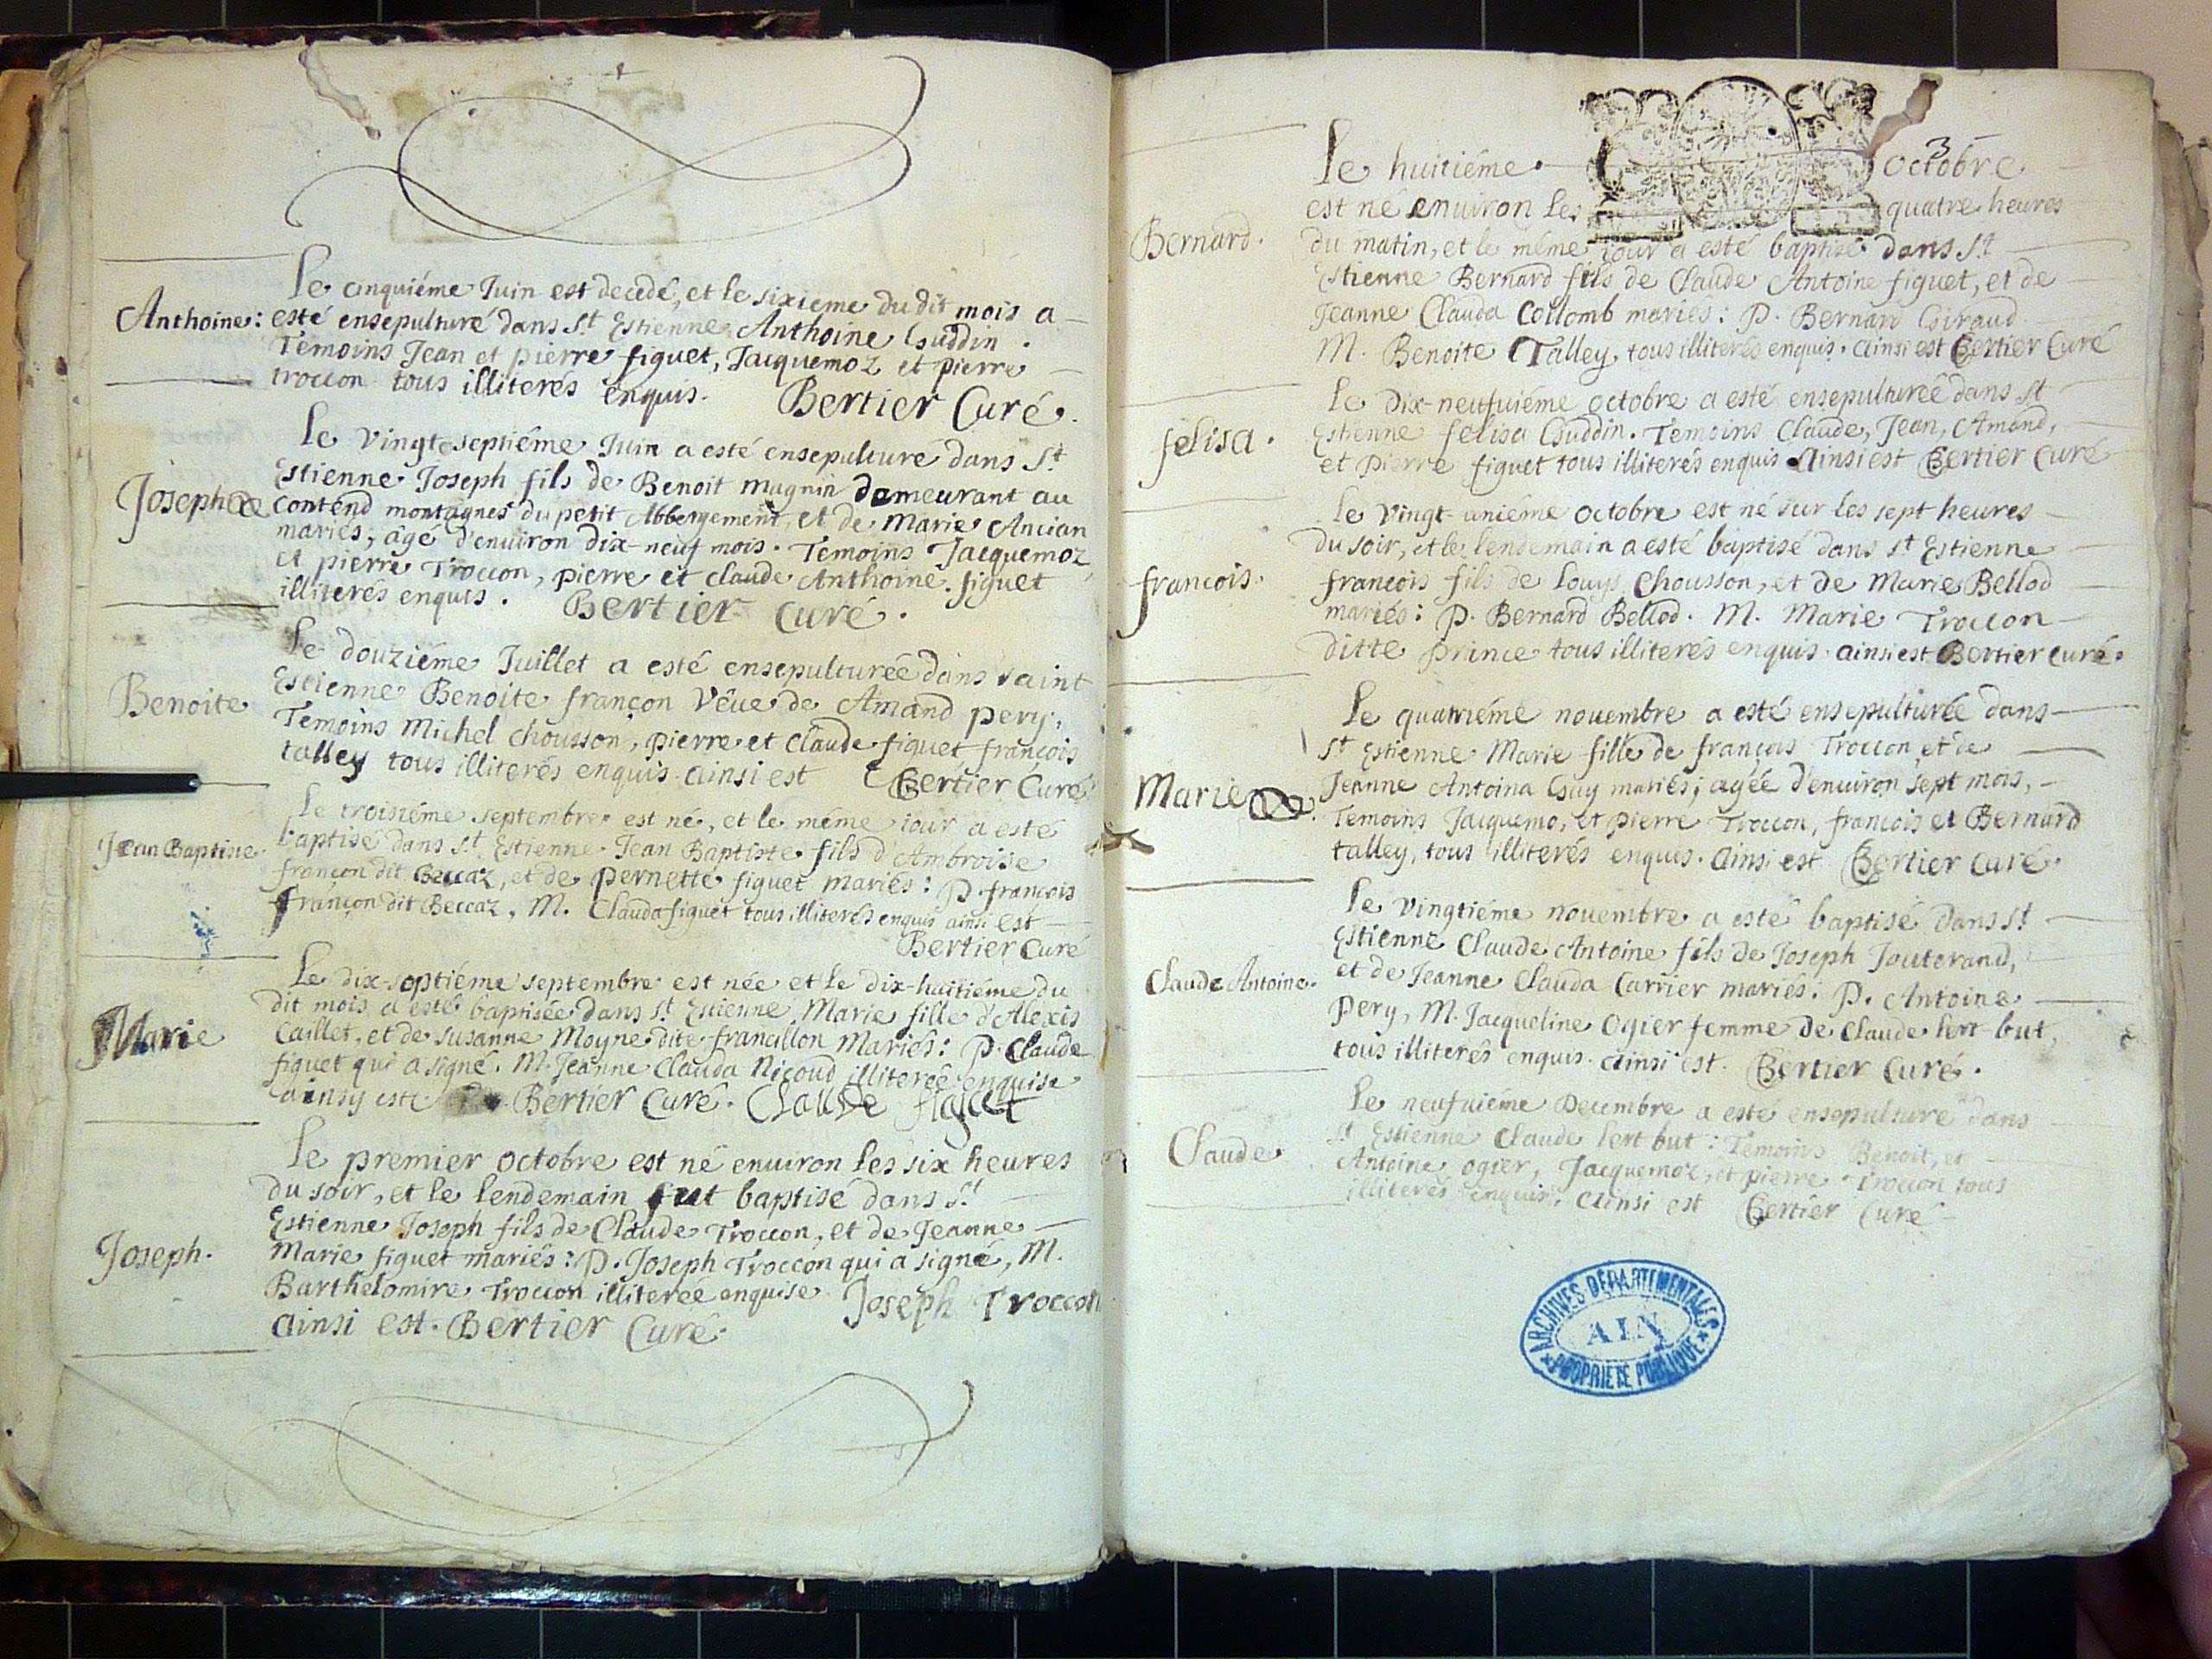 Le cinquiéme Juin est decedé, et le sixieme du dit mois a
Anthoine: esté ensepulturé dans St Estienne Anthoine Guddin.
Témoins Jean et pierre figuet, Jacquemoz et pierre
troccon tous illiterés enquis. Bertier Curé.
Le vingt septiéme Juin a esté ensepulturé dans St
Estienne Joseph fils de Benoit magnin demeurant au
Joseph contend montagnes du petit Abbergement, et de Marie Ancian
mariés, âgé d'enuiron dix-neuf mois. Temoins Jacquemoz
et pierre Troccon, pierre et claude Anthoine figuet
illiterés enquis. Bertier curé.
Le douziéme Juillet a esté ensepulturée dans saint
Benoite Estienne Benoite françon Vêue de Amand pery,
Temoins Michel chousson, pierre et claude figuet françois
talley tous illiterés enquis. ainsi est Bertier Curé
Le troisiéme septembre est né, et le méme iour a esté
Jean Baptiste baptisé dans St Estienne Jean Baptiste fils d'Ambroise
françon dit Beccaz, et de pernette figuet mariés: P. françois
françon dit Beccaz, M. Clauda figuet tous illiterés enquis ainsi est
Bertier Curé
Le dix-septiéme septembre est née et le dix-huitiéme du
dit mois a esté baptisée dans St Estienne Marie fille d'Alexis
Marie Caillet, et de susanne Moyne dite francillon Mariés: P. Claude
figuet qui a signé. M. Jeanne Clauda Nicoud illiterée enquise
ainsy est. Bertier Curé. Claude figuet
Le premier octobre est né enuiron les six heures
du soir, et le lendemain fut baptisé dans St
Estienne Joseph fils de Claude Troccon, et de Jeanne
Joseph. Marie figuet mariés: P. Joseph Troccon qui a signé, M.
Barthelomire Troccon illiterée enquise Joseph Troccon
ainsi est. Bertier Curé.
3
Le huitiéme octobre
est né enuiron les quatre heures
Bernard. du matin, et le méme iour a esté baptisé dans St
Estienne Bernard fils de Claude Antoine figuet, et de
Jeanne Clauda Collomb mariés: P. Bernard Giraud
M. Benoite Talley, tous illiterés enquis. ainsi est Bertier Curé
Le Dix-neufuiéme octobre a esté ensepulturée dans St
felisa. Estienne felisa Guddin. Temoins Claude, Jean, Amand,
et Pierre figuet tous illiterés enquis Ainsi est Bertier curé
Le vingt-uniéme octobre est né sur les sept heures
du soir, et le lendemain a esté baptisé dans St Estienne
francois. francois fils de Louys Chousson, et de Marie Bellod
mariés: P. Bernard Bellod. M. Marie Troccon
ditte prince tous illiterés enquis. ainsi est Bertier curé.
Le quatriéme nouembre a esté ensepulturée dans
St Estienne Marie fille de françois Troccon, et de
Marie Jeanne Antoina Guy mariés; agée d'enuiron sept mois,
Temoins Jacquemo, et pierre Troccon, francois et Bernard
talley, tous illiterés enquis. ainsi est Bertier curé.
Le vingtiéme nouembre a esté baptisé Dans St
Estienne Claude Antoine fils de Joseph Jouterand,
Claude Antoine. et de Jeanne Clauda Carrier mariés. P. Antoine
Pery, M. Jacqueline Ogier femme de Claude lert but,
tous illiterés enquis. ainsi est. Bertier Curé.
Le neufuiéme Decembre a esté ensepulturé dans
Claude St Estienne Claude lert but: Temoins Benoit, et
Antoine ogier, Jacquemoz, et pierre Troccon tous
illiterés enquis. ainsi est Bertier Curé
ARCHIVES DÉPARTEMENTALES
AIN
PROPRIÉTÉ PUBLIQUE